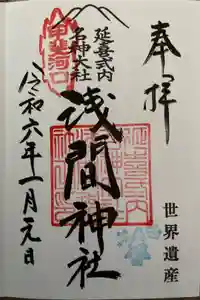 奉拝
世界遺産
延喜式内
名神大社
浅間神社
甲斐河口
令和六年一月元日